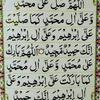 اَللّٰهُمَّ صَلِّ عَلٰى مُحَمَّدٍ
وَعَلٰى اٰلِ مُحَمَّدٍ كَمَا صَلَّيْتَ
عَلٰى اِبْرَاهِيْمَ وَعَلٰى اٰلِ اِبْرَاهِيْمَ
اِنَّكَ حَمِيْدٌ مَّجِيْدٌ
وَعَلٰى اٰلِ مُحَمَّدٍ
كَمَا بَارَكْتَ عَلٰى اِبْرَاهِيْمَ
وَعَلٰى اٰلِ اِبْرَاهِيْمَ اِنَّكَ حَمِيْدٌ